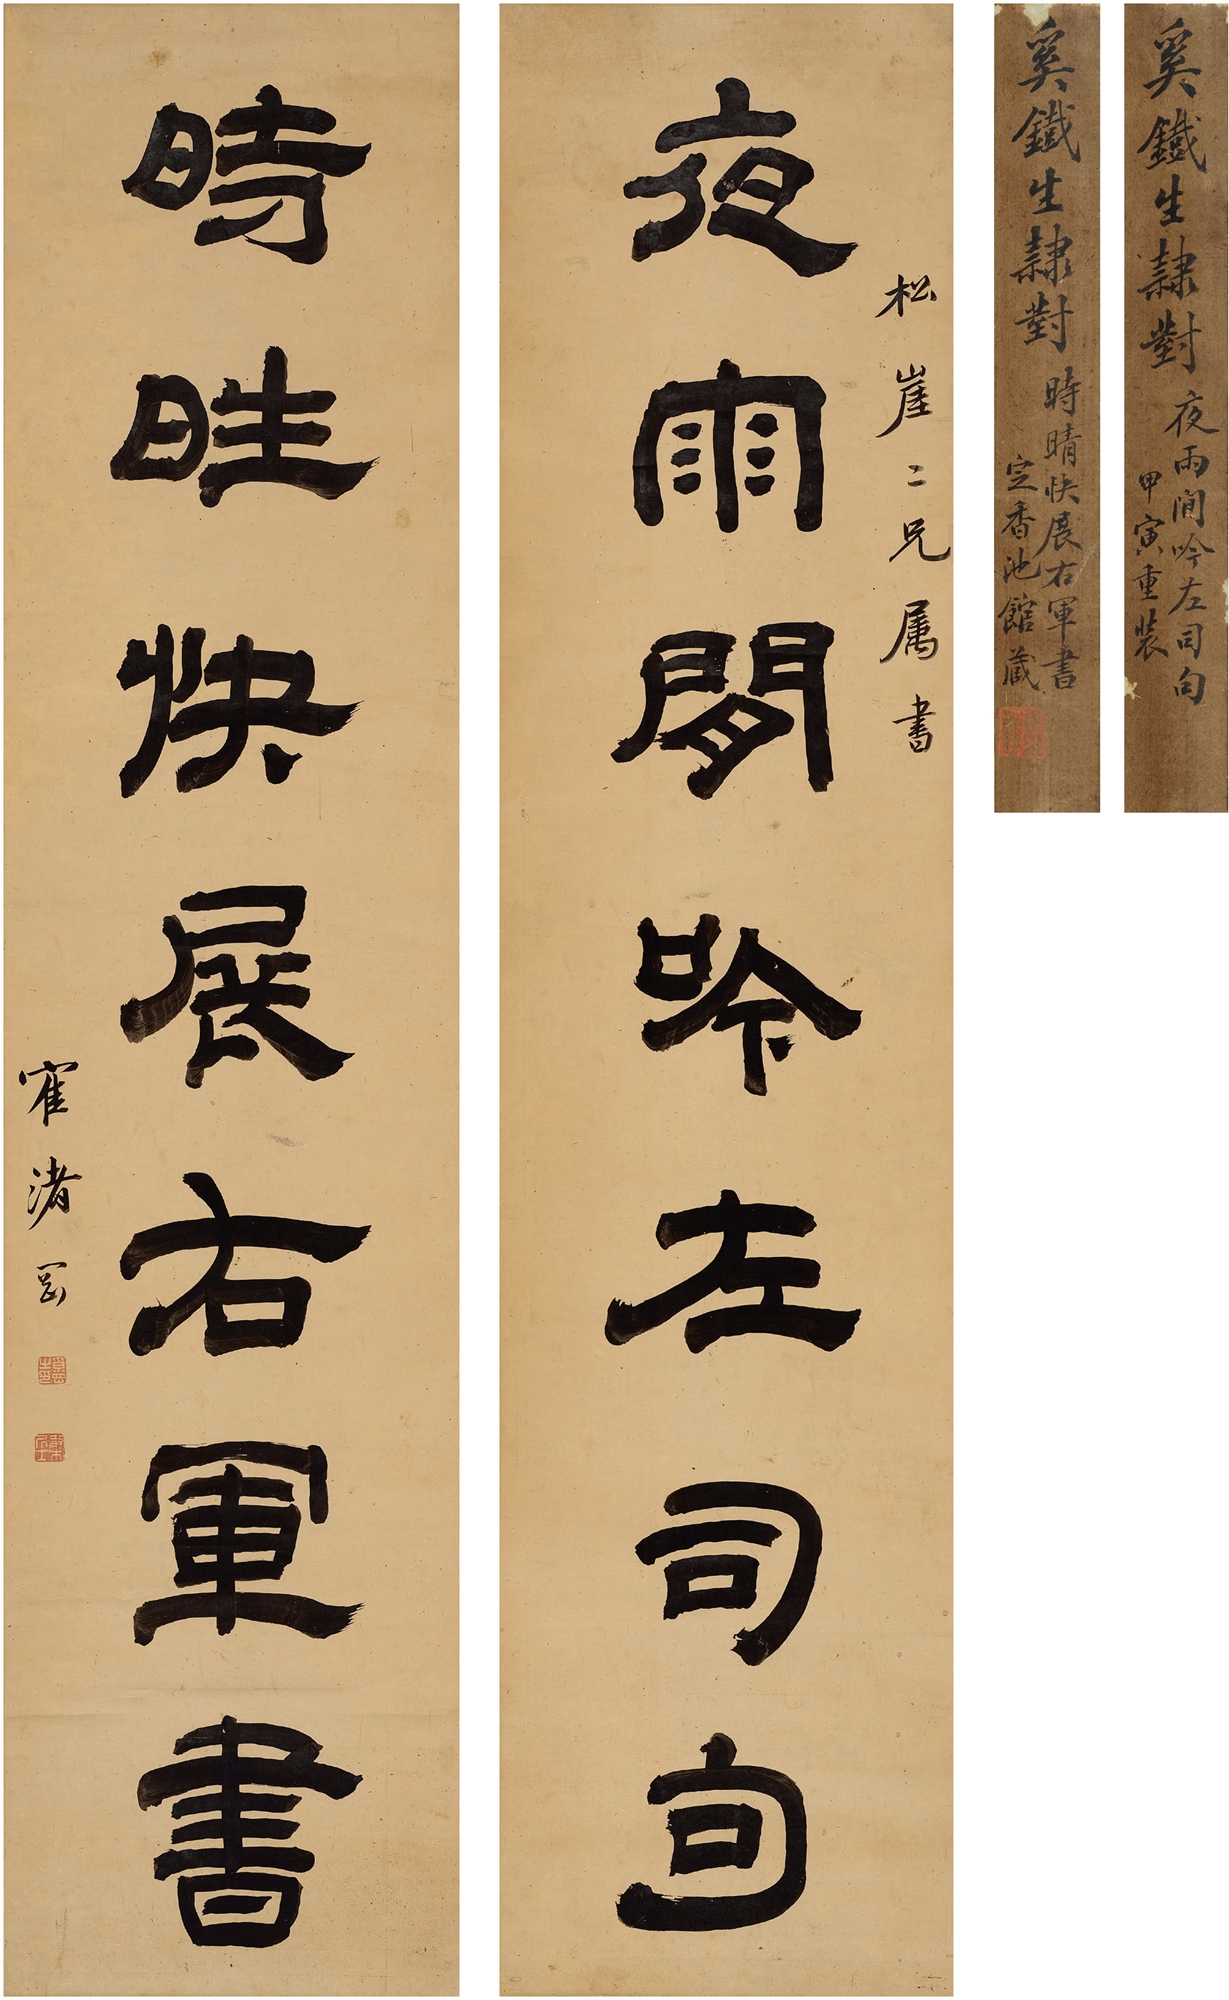 奚鐵生隸對
夜雨閒吟左司句
甲寅重裝
奚鐵生隸對
時晴快展右軍書
定香池館藏
松崖二兄属書
夜雨閒吟左司句
時晴快展右軍書
寉渚岡